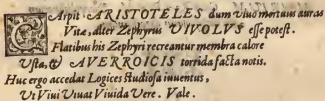 CArpit ARISTOTELES dum viuo mortuus auras
Vitæ, alter Zephyrus VIVOLVS esse potest.
Flatibus his Zephyri recreantur membra calore
Vsta, & AVERROICIS torrida facta notis.
Huc ergo accedat Logices studiosa iuuentus,
Vt Viui Viuat Viuida Vere. Vale.